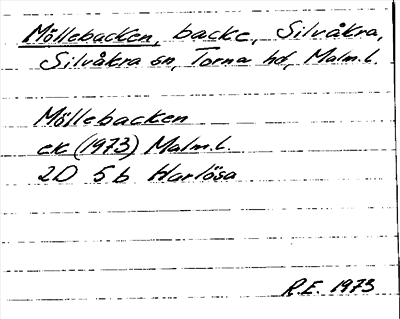 Möllebacken, backe, Silvåkra,
Silvåkra sn, Torna hd, Malm.l.
Möllebacken
ek (1973) Malm.l.
2D 5b Harlösa
R.E. 1973